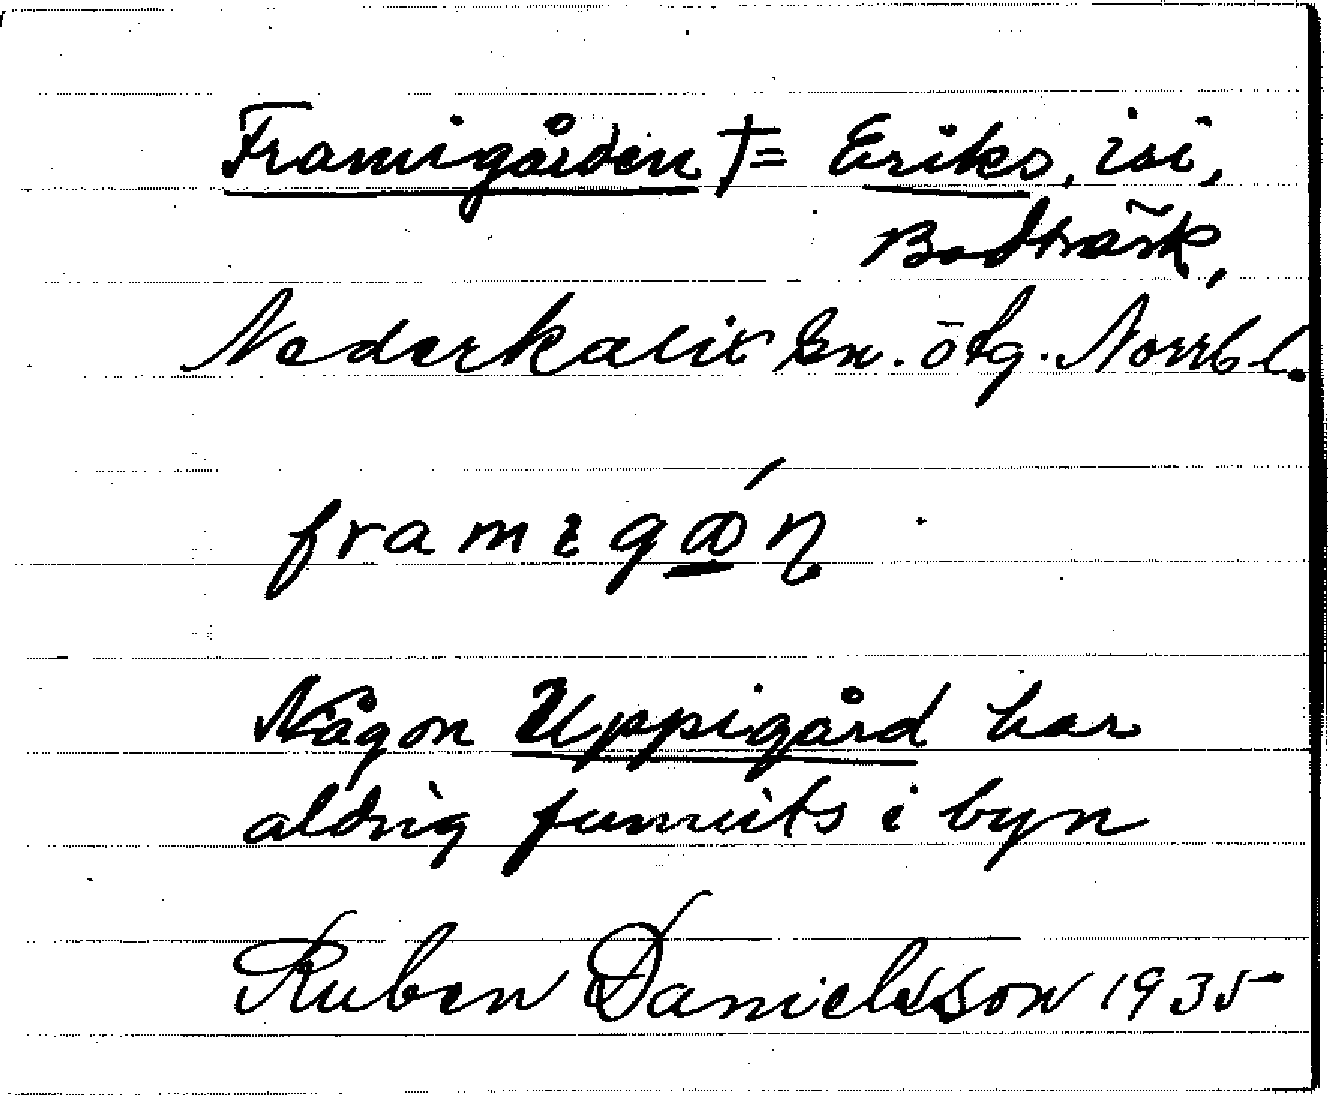 Framigården †= Eriks, isi,
Bodträsk,
Nederkalix sn. ötg. Norrb l.
framıgån
Någon Uppigård har
aldrig funnits i byn
Ruben Danielsson 1935